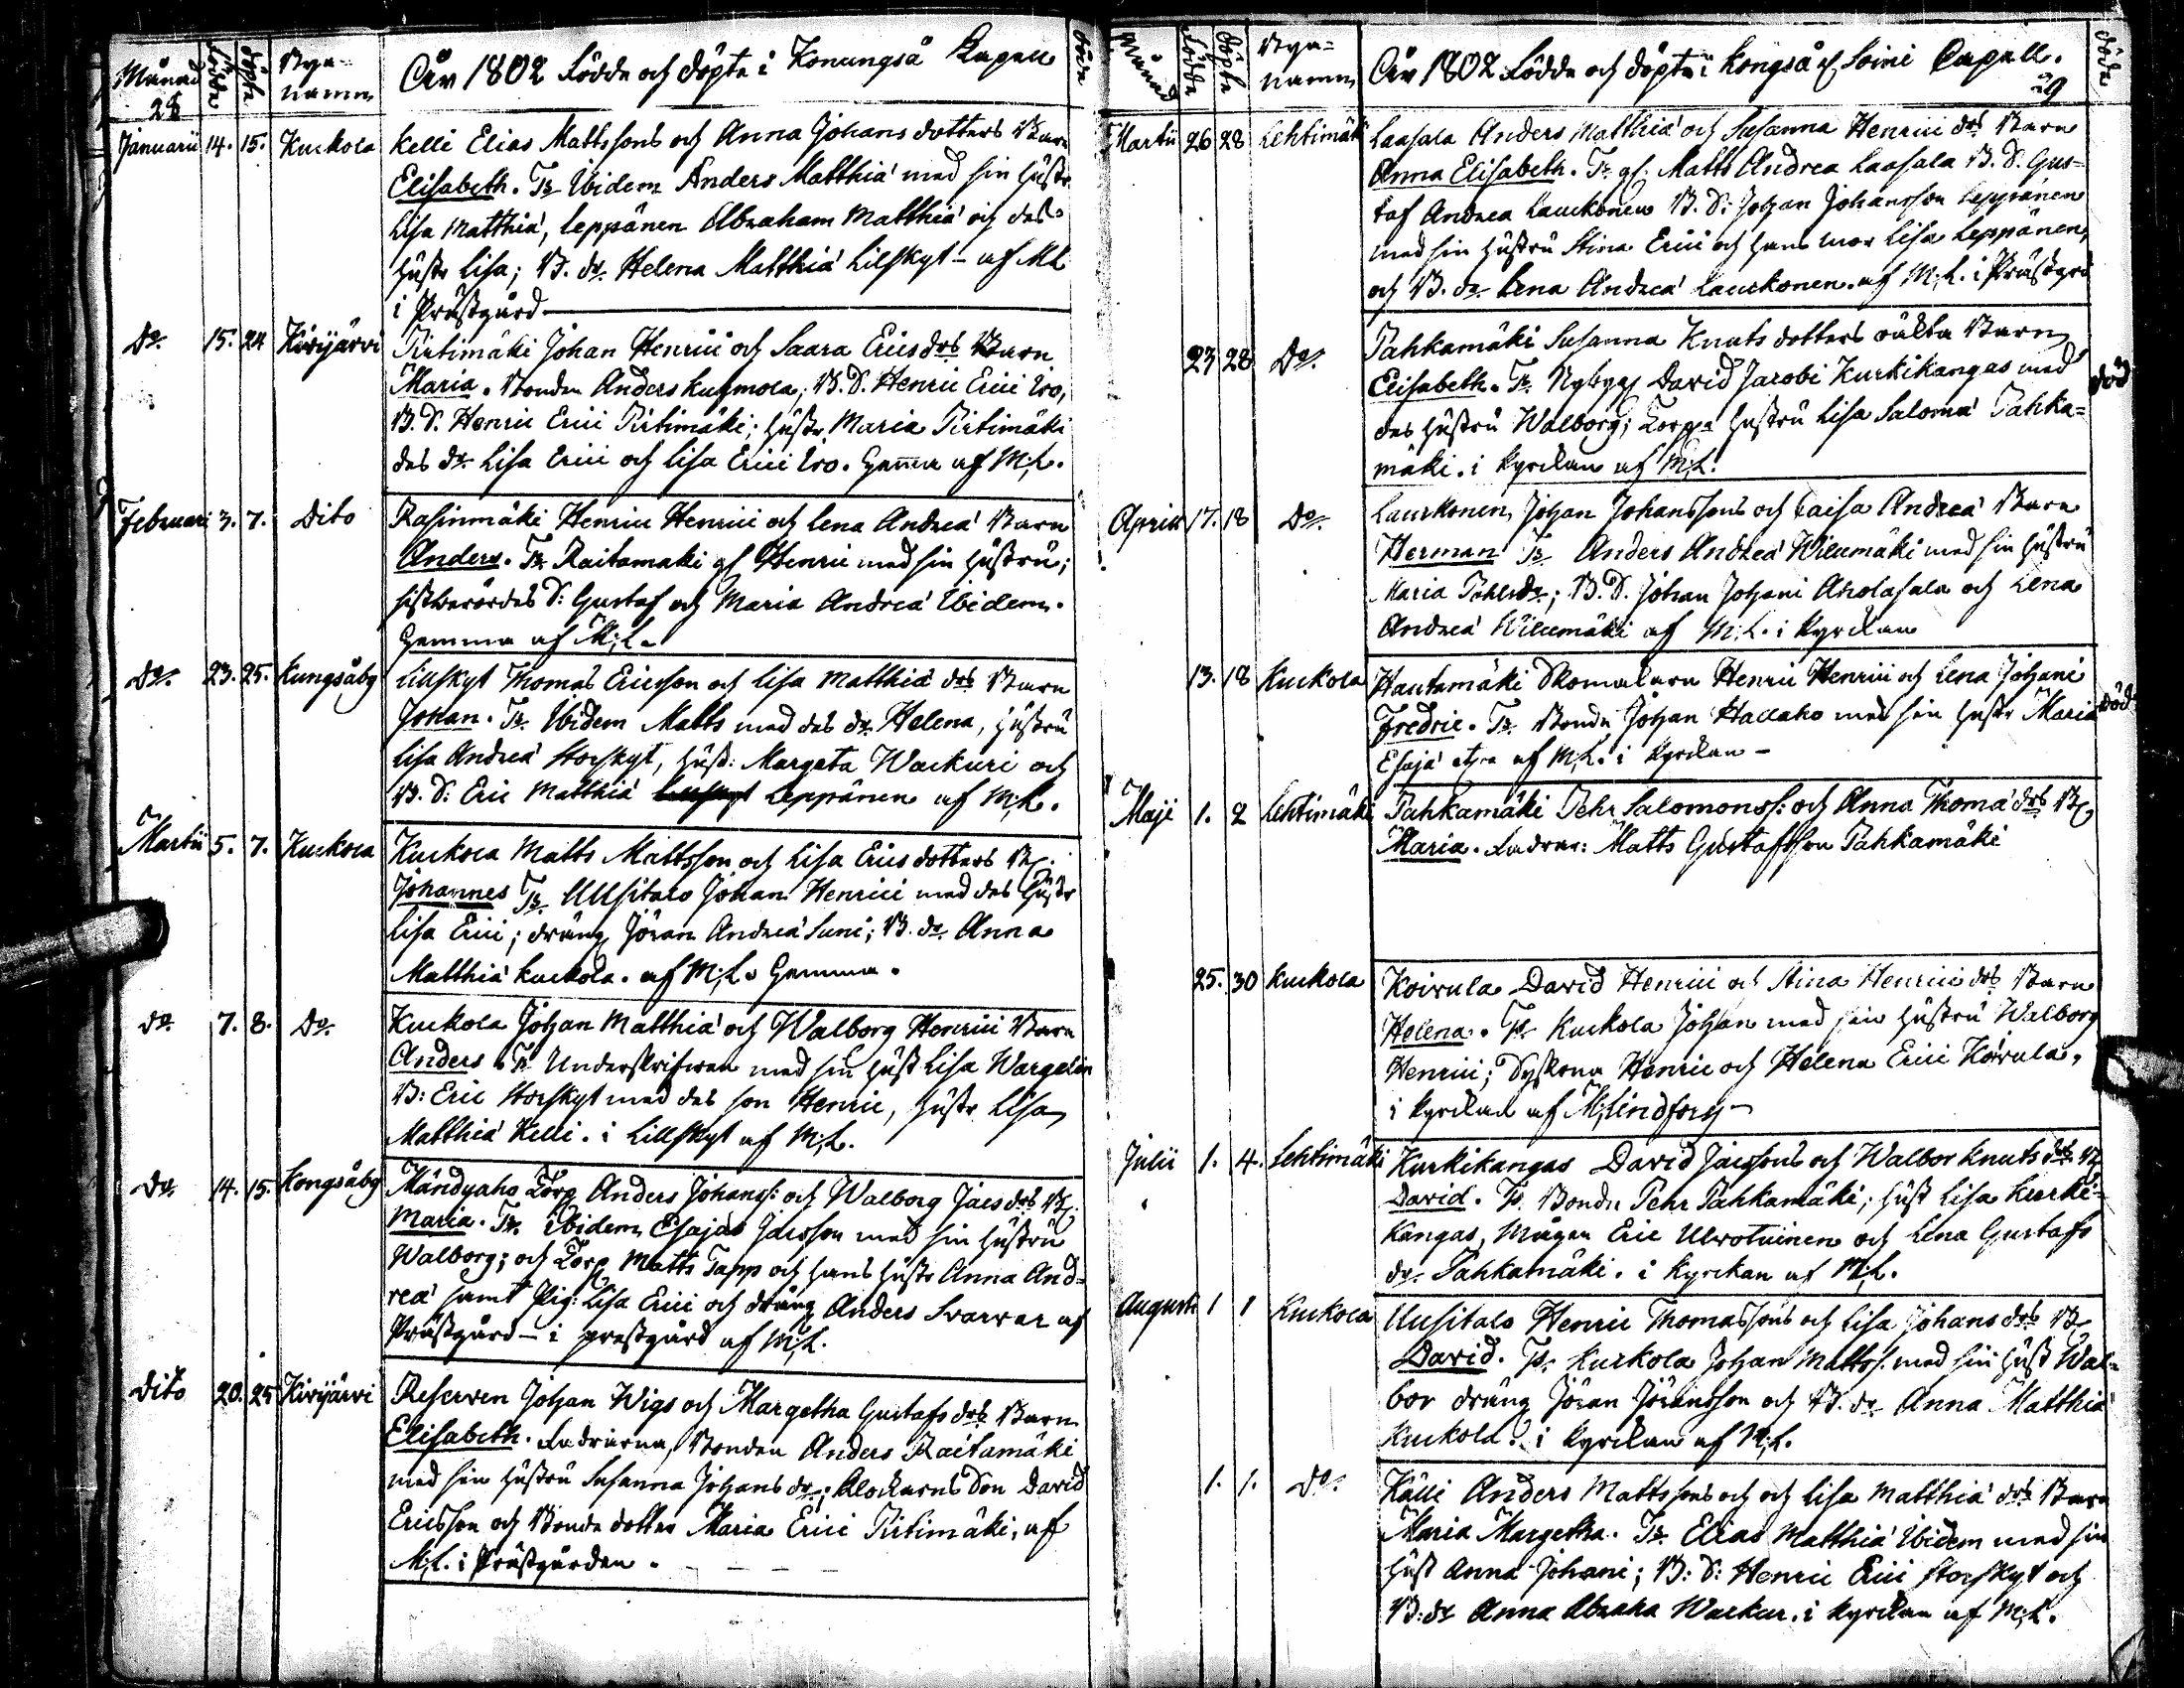 Månad
28
födde
döpte
Bya-
namn
Åhr 1802 födde och döpte i Konungså Capell
döde
Januarii 14. 15. Kuckola Kelli Elias Mattssons och Anna Johans dotters Barn
Elisabeth. Ts. Ibidem Anders Matthiæ med sin hustr
Lisa Matthiæ, Leppänen Abraham Matthiæ och des
hustr Lisa; B. dr. Helena Matthiæ Lillskyt - af ML
i Prästgård
Do. 15. 24 Kivijärvi Pirtimäki Johan Henrici och Saara Erics drs Barn
Maria. Bonden Anders kuhmola; B. S. Henric Erici Iso,
B. S. Henric Erici Pirtimäki; hustr. Maria Pirtimäki
des dr. Lisa Erici och Lisa Erici Iso. hemma af M;L.
Februari 3. 7. Dito Rasinmäki Henric Henrici och Lena Andreæ Barn
Anders. Ts. Raitamaki Henric med sin hustru;
sistberördes S: Gustaf och Maria Andreæ Ibidem.
hemma af M;L.
Do. 23. 25. Kungsåby Lillskyt Thomas Ericsson och Lisa Matthiæ drs Barn
Johan. Ts. Ibidem Matts med des dr. Helena, hustru
Lisa Andreæ Storskyt, hust: Margeta Warkuri och
B. S: Eric Matthiæ Leppänen af M;L.
Martii 5. 7. Kuckola Kuckola Matts Mattsson och Lisa Erics dotters B.
Johannes Ts. Uusitalo Johan Henrici med des hustr
Lisa Erici; dräng Jöran Andreæ Suni; B. dr. Anna
Matthiæ kuckola. af M;L. hemma.
do. 7. 8. Do. Kuckola Johan Matthiæ och Walborg Henrici Barn
Anders. Ts. Underskrifwen med sin hust Lisa Wargelin
B: Eric Storskyt med des son Henric, hustr Lisa
Matthiæ Kelli. i Lillskyt af M;L.
Do. 14. 15. Kongsåby Mändyaho Torp Anders Johanss: och Walborg Jacs drs B.
Maria. Ts. ibidem Esajas Jacsson med sin hustru
Walborg; och Torp Matts Tapp och hans hustr Anna And-
reæ samt Pig: Lisa Erici och dräng Anders Svarvar af
Prästgård - i prestgård af M;L.
Dito 20. 25 Kivijärvi Reserven Johan Wigs och Margetha Gustafs drs Barn
Elisabeth. Fadrarna, Bonden Anders Raitamäki
med sin hustru Susanna Johans dr.; Klockarns Son David
Ericsson och Bonde dotter Maria Erici Pirtimäki, af
M;L. i Prästgården.
Månad
födde
döpte
Bya-
namn
Åhr 1802 födde och döpte i Kongså och Soini Capell.
29
döde
Martii 26 28 Lehtimäki Laasala Anders Matthiæ och Susanna Henrici drs Barn
Anna Elisabeth. Ts. Matts Andreæ Laasala B. S. Gus-
taf Andreæ Laurkonen B. S: Johan Johansson Leppänen
med sin hustru Stina Erici och hans mor Lisa Leppänen,
och B. dr. Lena Andreæ Laurkonen. af M;L. i Prästgrd
23 28 Do. Pahkamäki Susanna Knuts dotters oäkta Barn
Elisabeth. Ts. Nybygg David Jacobi Kurkikangas med
des hustru Walborg; Torpa hustru Lisa Saloma Pahka-
mäki. i kyrckan af M;L.
död
Aprill 17. 18 Do. Laurkonen, Johan Johanssons och Caisa Andreæ Barn
Herman Ts. Anders Andreæ Wilumäki med sin hustru
Maria Påhlsdr; B. S. Johan Johani Aholasala och Lena
Andreæ Wilumäki af M;L. i kyrckan
13. 18 Kuckola Hautamäki Skomakarn Henric Henrici och Lena Johani
Fredric. Ts. Bonde Johan Hallaho med sin hustr Maria
Esajæ af M;L. i kyrckan -
död
Maji 1. 2 Lehtimäki Pahkamäki Pehr Salomonss: och Anna Thomæ drs B.
Maria. Fadrar: Matts Gustafsson Pahkamäki
25. 30 Kuckola Koivula David Henrici och Stina Henrici drs Barn
Helena. Ts. Kuckola Johan med sin hustru Walborg
Henrici; Syskona Henric och Helena Erici Koivula,
i kyrckan af M;Lindfors -
Julii 1. 4. Lehtimäki Kurkikangas David Jacssons och Walbor Knuts drs B.
David. Ts. Bonden Pehr Pahkamäki; hust Lisa Kurki-
kangas, Mågen Eric Ulvotuinen och Lena Gustafs
dr. Pahkamäki. i kyrckan af M;L.
Augusti 1 1 Kuckola Uusitalo Henric Thomassons och Lisa Johans drs B.
David. Ts. Kuckola Johan Mattss. med sin hust Wal-
bor dräng Jöran Jöransson och B. dr Anna Matthiæ
Kuckola. i kyrckan af M;L.
1. 1. Do. Källi Anders Mattssons och och Lisa Matthiæ drs Barn
Maria Margetha. Ts. Elias Matthiæ Ibidem med sin
hust Anna Johani; B: S: Henric Erici Storskyt och
B: dr Anna Abraha Warkur. i kyrckan af M;L.